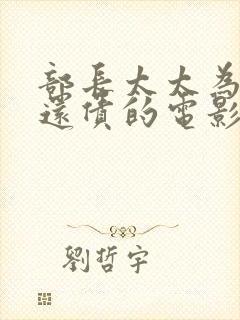 部長太太為
還債的電影
劉哲宇